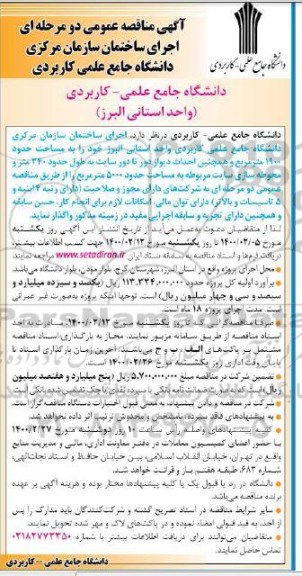 آگهی مناقصه عمومی دو مرحله ای
اجرای ساختمان سازمان مرکزی
دانشگاه جامع علمی کاربردی
دانشگاه جامع علمی-کاربردی
دانشگاه جامع علمی- کاربردی
(واحد استانی البرز)
دانشگاه جامع علمی- کاربردی درنظر دارد، اجرای ساختمان سازمان مرکزی
دانشگاه جامع علمی کاربردی واحد استانی البرز خود را به مساحت حدود
۱۹۰۰ متر مربع و همچنین احداث دیوار دور تا دور سایت به طول حدود ۳۴۰ متر و
محوطه سازی سایت مربوطه به مساحت حدود ۵۰۰۰ مترمربع را از طریق مناقصه
عمومی دو مرحله ای به شرکت‌های دارای مجوز و صلاحیت (دارای رتبه ۴ ابنیه و
۵ تاسیسات و بالاتر) دارای توان مالی، امکانات لازم برای انجام کار، حسن سابقه
و همچنین دارای تجربه و سابقه اجرایی مفید در زمینه مذکور واگذار نماید.
لذا از متقاضیان دعوت بعمل می‌آید از تاریخ انتشار این آگهی روز یکشنبه
مورخ ۱۴۰۰/۰۲/۰۵ تا روز یکشنبه مورخ ۱۴۰۰/۰۲/۱۲ جهت کسب اطلاعات بیشتر،
دریافت فرم‌ها و اسناد مناقصه به سامانه ستاد ایران www.setadiran.ir مراجعه نمایند.
محل اجرای پروژه واقع در استان البرز، شهرستان کرج، بلوار موذن، بلوار دانشگاه می‌باشد.
برآورد اولیه کل پروژه حدود ۱۱۳.۳۳۴.۰۰۰.۰۰۰ ریال (یکصد و سیزده میلیارد و
سیصد و سی و چهار میلیون ریال) است. توجها اینکه پروژه به‌صورت غیر عمرانی
است. مدت اجرای پروژه ۱۸ ماه است.
تضمین شرکت در مناقصه مبلغ ۵.۷۰۰.۰۰۰.۰۰۰ ریال (پنج میلیارد و هفتصد میلیون
شرکت در مناقصه و دادن پیشنهاد به منزله قبول اختیارات دستگاه مناقصه گزار است.
به پیشنهادهای فاقد سپرده، مخدوش و مخدوش ترتیب اثر داده نخواهد شد.
با حضور اعضای کمیسیون معاملات در دفتر معاونت اداری، مالی و مدیریت منابع
واقع در تهران، خیابان انقلاب اسلامی، بین خیابان حافظ و استاد نجات‌الهی،
شماره ۶۸۳، طبقه هفتم، باز و قرائت خواهد شد.
دانشگاه در رد یا قبول یک یا کلیه پیشنهادها مختار بوده و هزینه آگهی بر عهده
برنده مناقصه می‌باشد.
سایر شرایط مناقصه در اسناد تصریح گشته و شرکت‌کنندگان باید مدارک را پس
از اخذ، به قید قبولی امضاء نموده و در پاکت‌های لاک و مهر شده تحویل نمایند.
متقاضیان می‌توانند برای دریافت اطلاعات بیشتر با شماره ۰۲۱۸۲۷۷۳۳۵۰
تماس حاصل نمایند.
دانشگاه جامع علمی - کاربردی